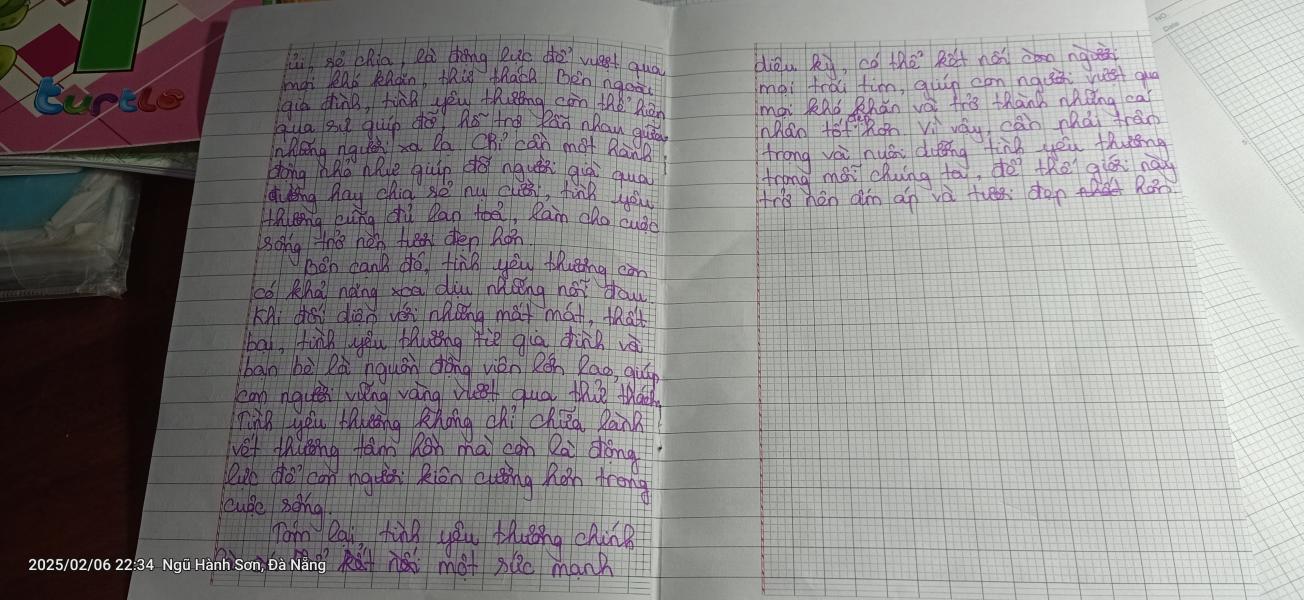 turtle
ủi, sẻ chia, là động lực để vượt qua
mọi khó khăn, thử thách Bên ngoài
gia đình, tình yêu thương còn thể hiện
qua sự giúp đỡ hỗ trợ lẫn nhau giữa
những người xa lạ Chỉ cần một hành
động nhỏ như giúp đỡ người già qua
đường hay chia sẻ nụ cười, tình yêu
thương cũng đủ lan toả, làm cho cuộc
sống trở nên tươi đẹp hơn.
Bên cạnh đó, tình yêu thương còn
có khả năng xoa dịu những nỗi đau
Khi đối diện với những mất mát, thất
bại, tình yêu thương từ gia đình và
bạn bè là nguồn động viên lớn lao, giúp
con người vững vàng vượt qua thử thách
Tình yêu thương không chỉ chữa lành
vết thương tâm hồn mà còn là động
lực để con người kiên cường hơn trong
cuộc sống.
Tóm lại, tình yêu thương chính
kết nối một sức mạnh
diệu kỳ, có thể kết nối con người
mọi trái tim, giúp con người vượt qua
mọi khó khăn và trở thành những cá
nhân tốt hơn Vì vậy, cần phải trân
trọng và nuôi dưỡng tình yêu thương
trong mỗi chúng ta, để thế giới này
trở nên ấm áp và tươi đẹp hơn
NO.
Date
2025/02/06 22:34 Ngũ Hành Sơn, Đà Nẵng